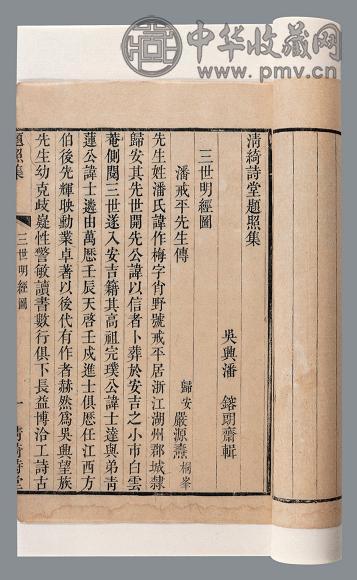 中华收藏网
www.pmv.cn
清綺詩堂題照集
吳興潘　鎔頭齋輯
三世明經圖
潘戒平先生傳
歸安　嚴源燾桐峯
先生姓潘氏諱作梅字肖野號戒平居浙江湖州郡城隸
歸安其先世開先公諱以信者卜葬於安吉之小市白雲
菴側閱三世遂入安吉籍其高祖完璞公諱士達與弟青
蓮公諱士遴由萬厯壬辰天啓壬戌進士俱厯任江西方
伯後先輝映勳業卓著以後代有作者赫然爲吳興望族
先生幼克歧嶷性警敏讀書數行俱下長益博洽工詩古
題照集
三世明經圖
一
清綺詩堂